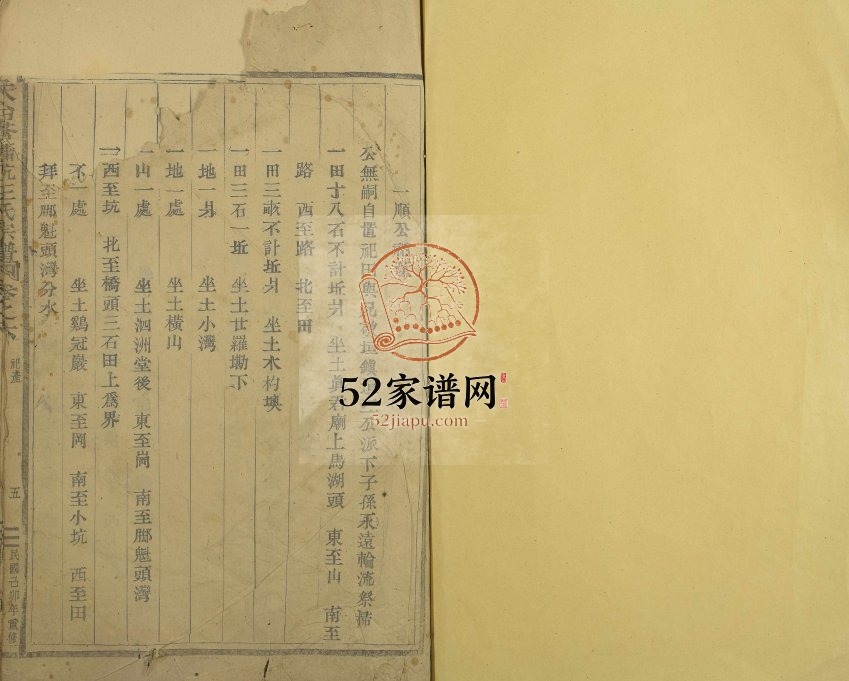 一順公
公無嗣自置祀田與兄 公派下子孫永遠輪流祭掃
一田十八石不計坵爿 坐土 廟上馬湖頭 東至山 南至
路 西至路 北至田
一田三畝不計坵爿 坐土木杓墺
一田三石一坵 坐土廿羅墈下
一地一爿 坐土小灣
一地一處 坐土橫山
一山一處 坐土泗洲堂後 東至崗 南至腳魁頭灣
西至坑 北至橋頭三石田上爲界
一處 坐土鷄冠巖 東至岡 南至小坑 西至田
至腳魁頭灣分水
王氏宗譜
祀產
五
民國己卯年重修
52家谱网
52jiapu.com